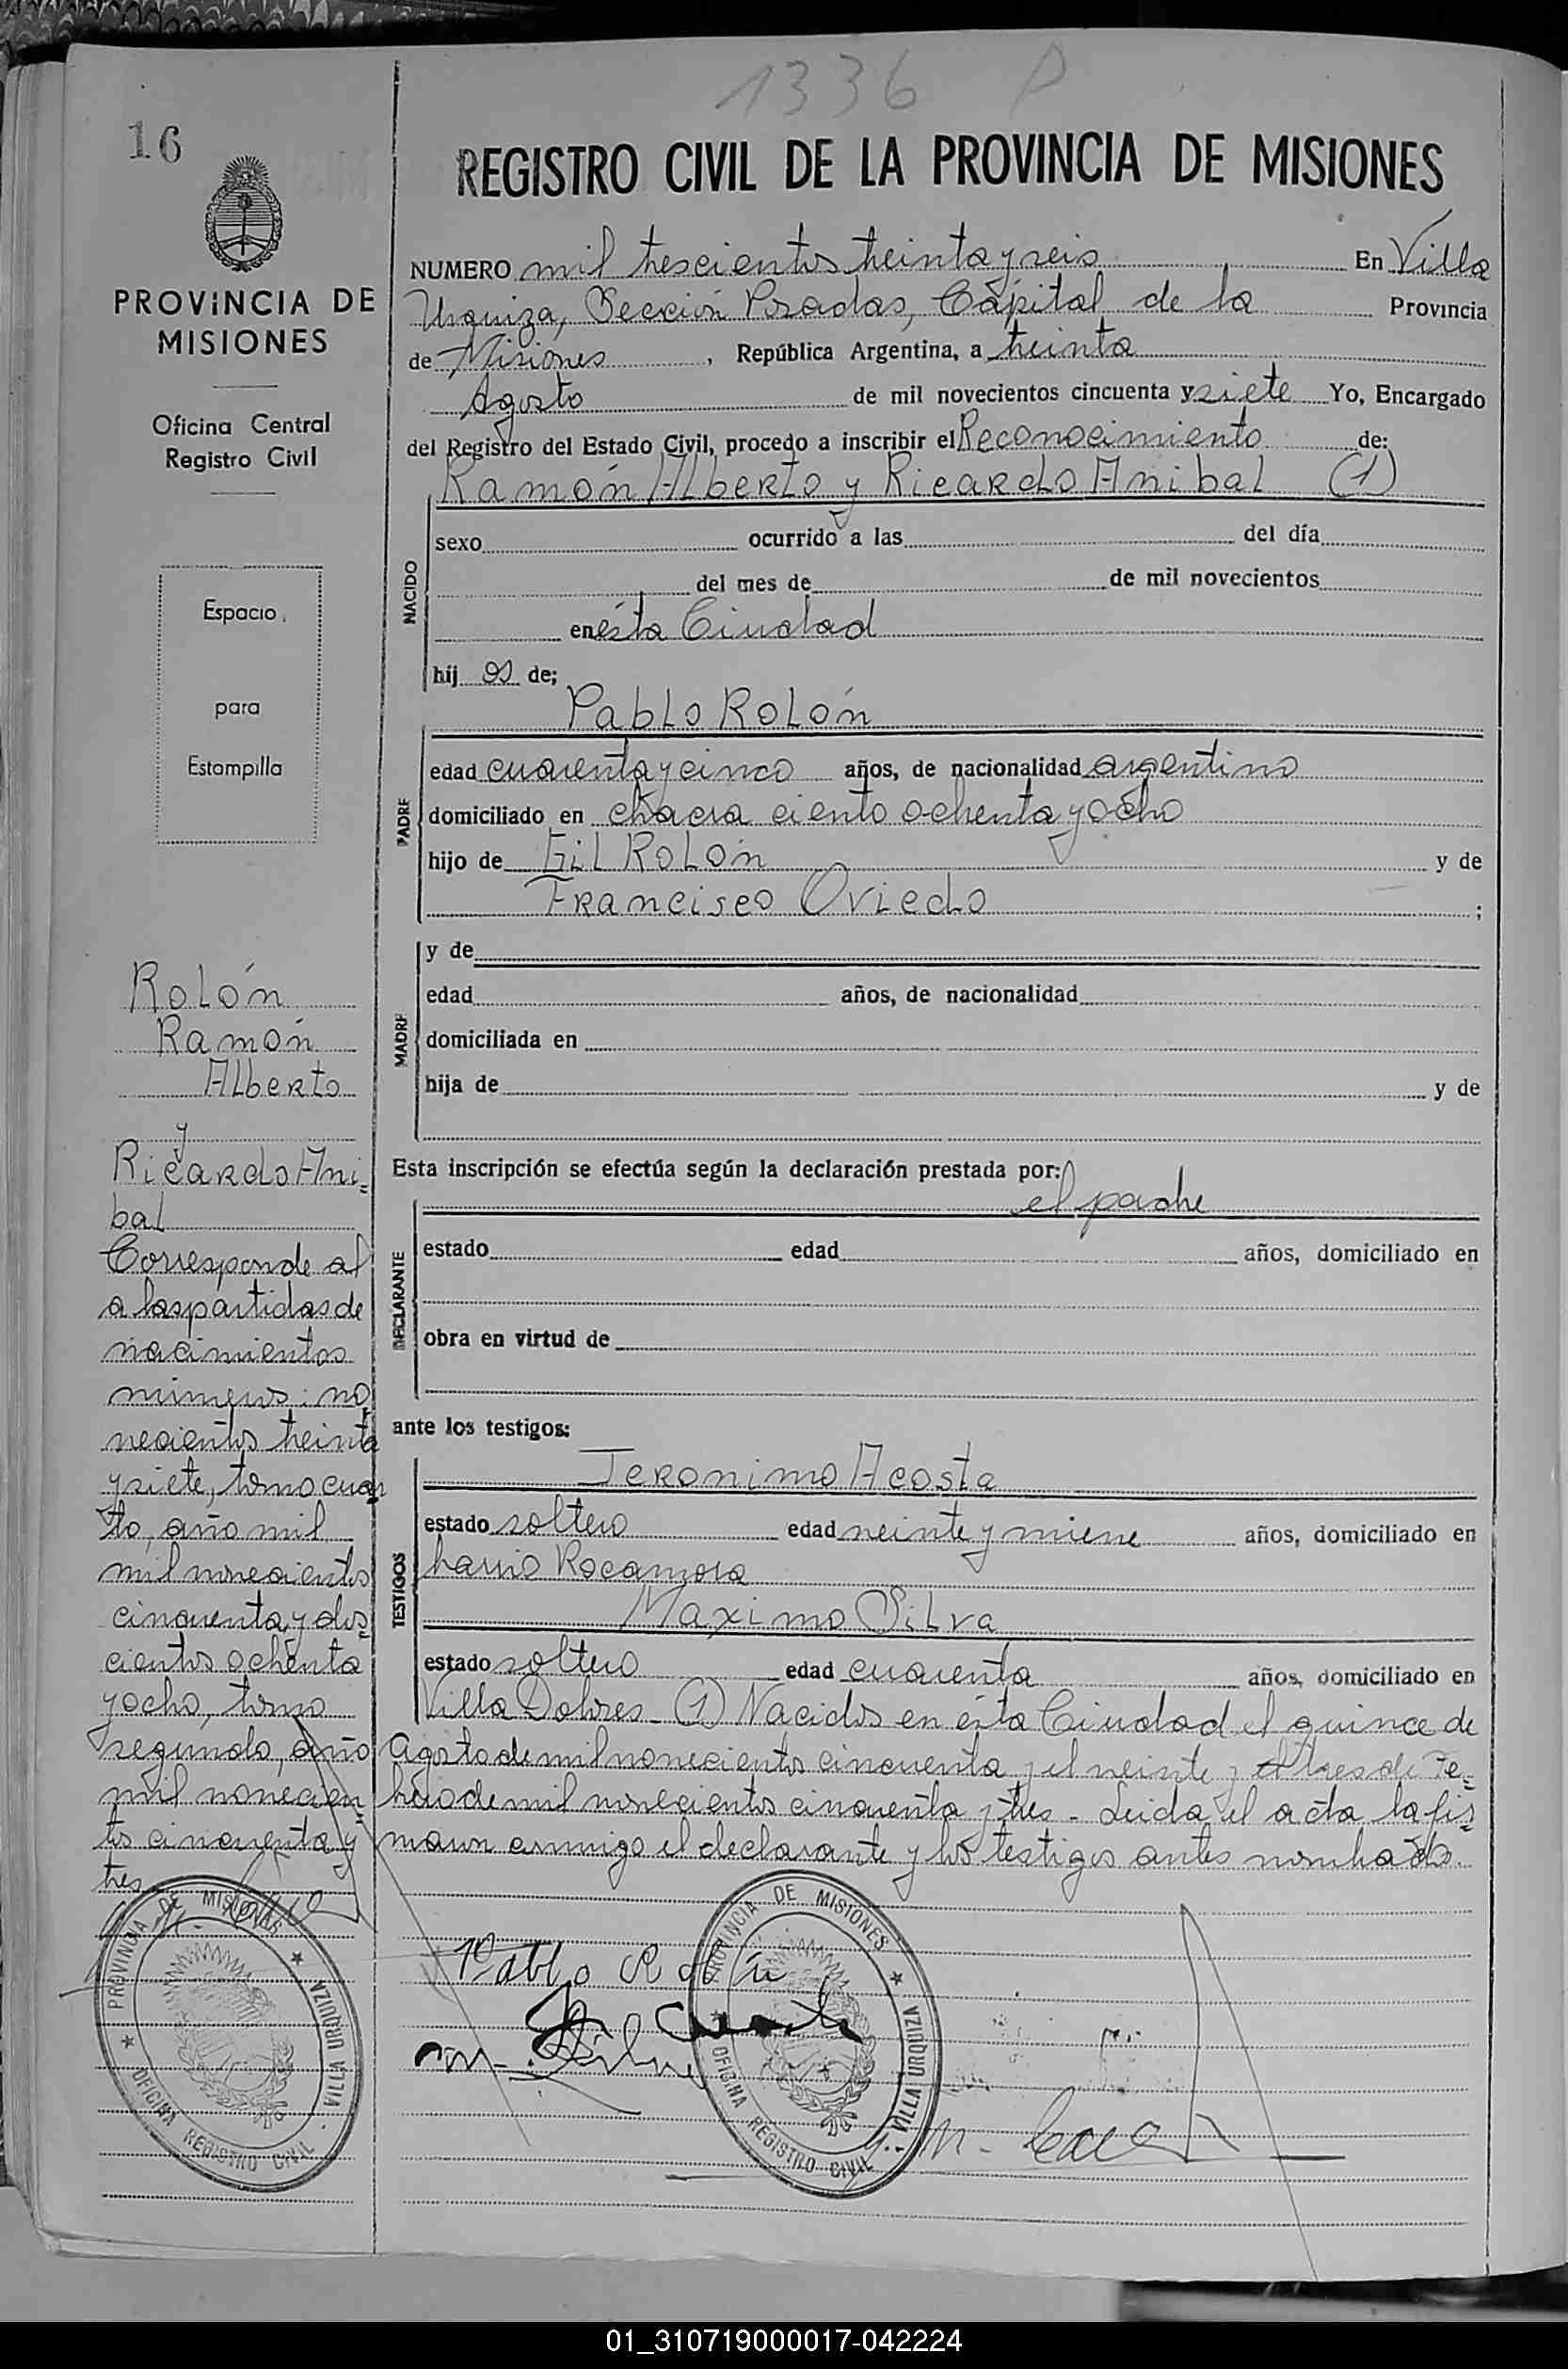 1336 P
16
REGISTRO CIVIL DE LA PROVINCIA DE MISIONES
PROVINCIA DE
MISIONES
Oficina Central
Registro Civil
Espacio
para
Estampilla
Rolón
Ramón
Alberto
y
Ricardo Aní=
bal
Corresponde al
a las partidas de
nacimientos
números: no
vecientos treinta
y siete, tomo cuar
to, año mil
mil novecientos
cincuenta y dos=
cientos ochenta
y ocho, tomo
segundo, año
mil novecien=
tos cincuenta y
tres
NUMERO mil trescientos treinta y seis En Villa
Urquiza, Sección Posadas, Capital de la Provincia
de Misiones, República Argentina, a treinta
Agosto de mil novecientos cincuenta y siete Yo, Encargado
del Registro del Estado Civil, procedo a inscribir el Reconocimiento de:
Ramón Alberto y Ricardo Anibal (1)
NACIDO
sexo ocurrido a las del día
del mes de de mil novecientos
en ésta Ciudad
hij os de;
Pablo Rolón
PADRE
edad cuarenta y cinco años, de nacionalidad argentino
domiciliado en chacra ciento ochenta y ocho
hijo de Gil Rolón y de
Francisco Oviedo ;
MADRE
y de
edad años, de nacionalidad
domiciliada en
hija de y de
Esta inscripción se efectúa según la declaración prestada por:
el padre
DECLARANTE
estado edad años, domiciliado en
obra en virtud de
ante los testigos:
Jeronimo Acosta
TESTIGOS
estado soltero edad veinte y nueve años, domiciliado en
barrio Rocamora
Maximo Silva
estado soltero edad cuarenta años, domiciliado en
Villa Dolores - (1) Nacidos en ésta Ciudad el quince de
Agosto de mil novecientos cincuenta y el veinte y tres de Fe=
brero de mil novecientos cincuenta y tres - Leida el acta la fir=
maron conmigo el declarante y los testigos antes nombrados.
Pablo Rolón
M. Silva
PROVINCIA DE MISIONES
VILLA URQUIZA
OFICINA REGISTRO CIVIL
PROVINCIA DE MISIONES
VILLA URQUIZA
OFICINA REGISTRO CIVIL
01_310719000017-042224